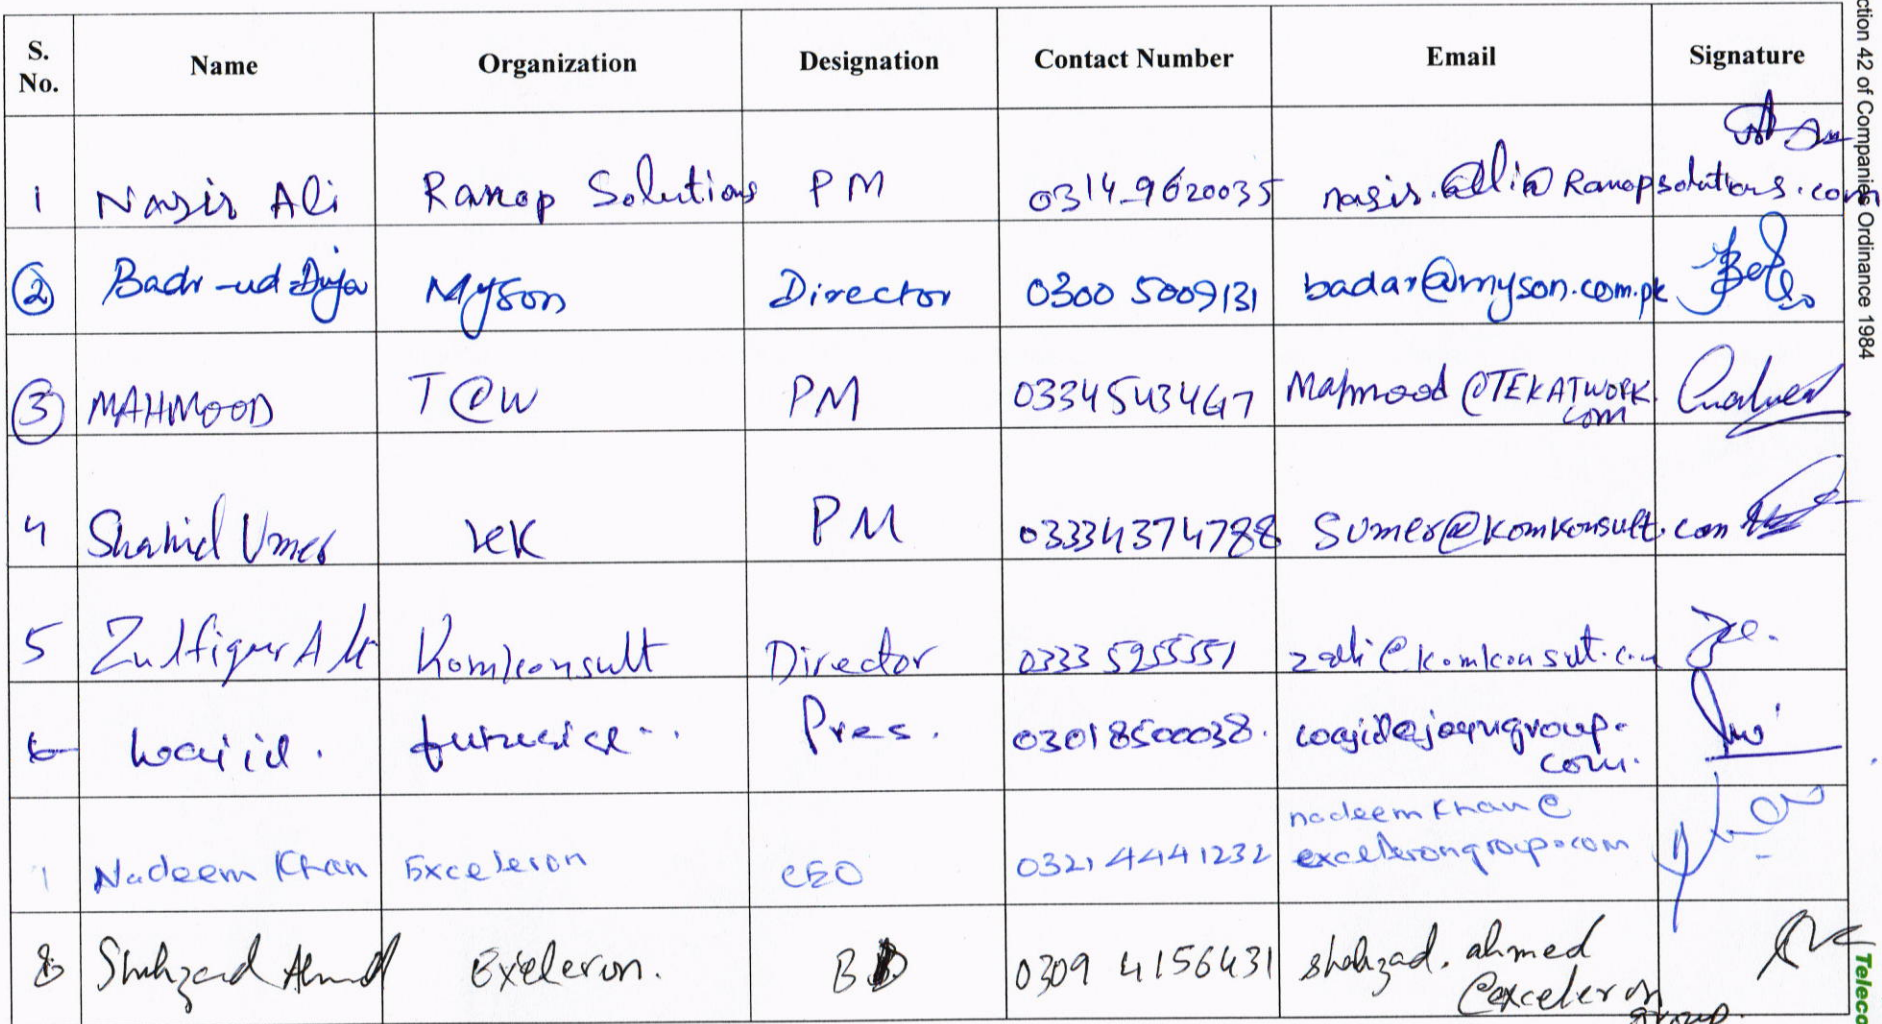 S. No. Name Organization Designation Contact Number Email Signature
1 Nasir Ali Ranop Solutions PM 0314-9620035 nasir.ali@Ranopsolutions.com
2 Badr-ud-Duja Myson Director 0300 5009131 badar@myson.com.pk
3 MAHMOOD T@W PM 03345434 Mahmood@TEKATWORK.
com
4 Shahid Umer KK PM 03334374788 Sumer@komkonsult.com
5 Zulfiqar Ali Komkonsult Director 0333 5255551 zali@komkonsult.com
6 Wajid. Pres. 03018500038.
com.
7 Nadeem Khan Exceleron CEO 0321 4441232 nadeemkhan@
excelerongroup.com
8 Shahzad Ahmed Exeleron. BD 0309 4156431 shahzad.ahmed
@exceleron
group.
ction 42 of Companies Ordinance 1984
Teleco